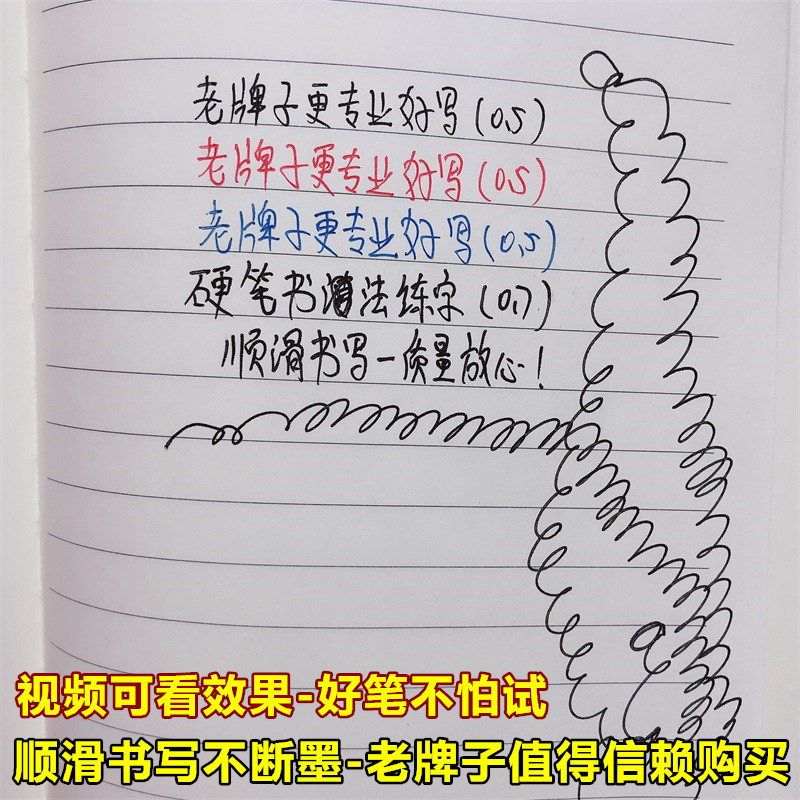 老牌子更专业好写(0.5)
老牌子更专业好写(0.5)
老牌子更专业好写(0.5)
硬笔书法练字(0.7)
顺滑书写-质量放心!
视频可看效果-好笔不怕试
顺滑书写不断墨-老牌子值得信赖购买